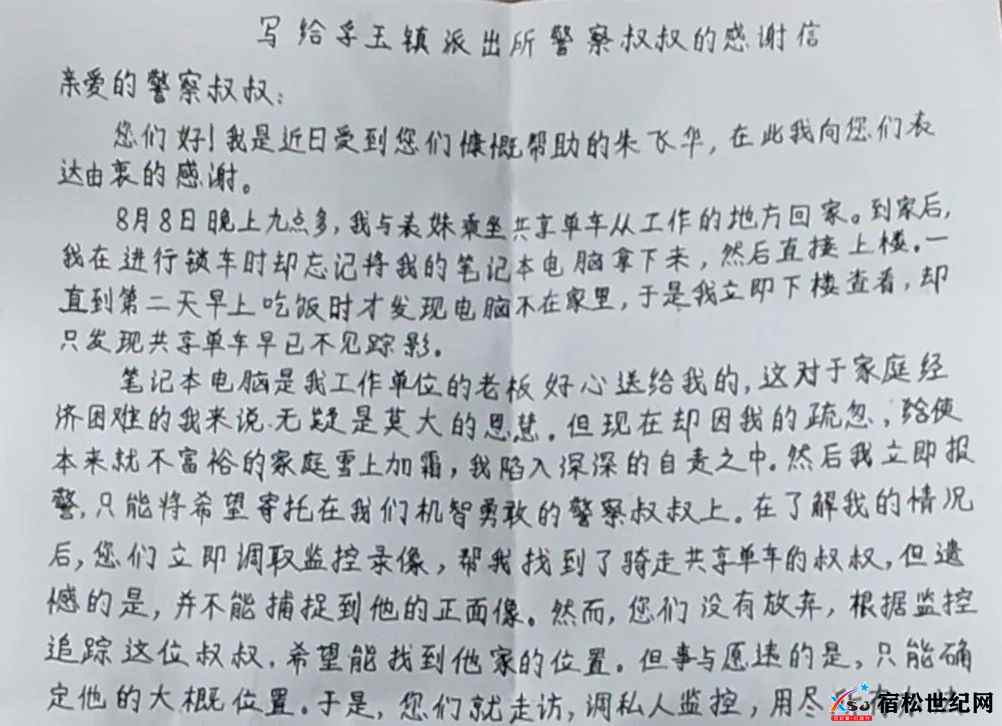 写给孚玉镇派出所警察叔叔的感谢信
亲爱的警察叔叔:
您们好!我是近日受到您们慷慨帮助的朱飞华,在此我向您们表
达由衷的感谢。
8月8日晚上九点多,我与表妹乘坐共享单车从工作的地方回家。到家后,
我在进行锁车时却忘记将我的笔记本电脑拿下来,然后直接上楼。一
直到第二天早上吃饭时才发现电脑不在家里,于是我立即下楼查看,却
只发现共享单车早已不见踪影。
笔记本电脑是我工作单位的老板好心送给我的,这对于家庭经
济困难的我来说.无疑是莫大的恩慧。但现在却因我的疏忽,给使
本来就不富裕的家庭雪上加霜,我陷入深深的自责之中。然后我立即报
警,只能将希望寄托在我们机智勇敢的警察叔叔上。在了解我的情况
后,您们立即调取监控录像,帮我找到了骑走共享单车的叔叔,但遗
憾的是,并不能捕捉到他的正面像。然而,您们没有放弃,根据监控
追踪这位叔叔.希望能找到他家的位置。但事与愿违的是,只能确
定他的大概位置。于是,您们就走访,调私人监控,用尽
宿松世纪网